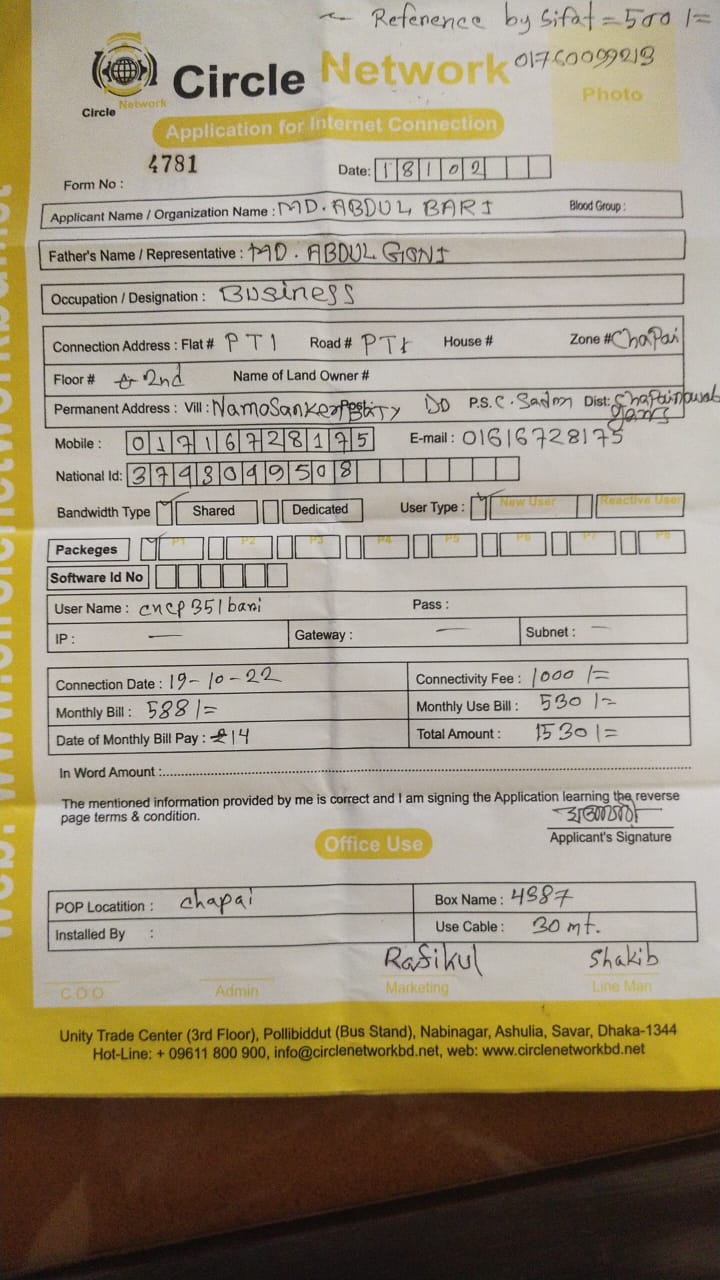 ← Reference by Sifat = 500 /=
Circle Network
Circle Network
Photo
Application for Internet Connection
4781
Form No :
Date: 18102
Applicant Name / Organization Name : MD. ABDUL BARI Blood Group :
Father's Name / Representative : MD. ABDUL GONI
Occupation / Designation : Business
Connection Address : Flat # PT1 Road # PT1 House # Zone # Chapai
Floor # 2nd Name of Land Owner #
Permanent Address : Vill : Post: DO P.S. C. Sadar Dist:
Mobile : 01716728175 E-mail : 01616728175
National Id: 3743049508
Bandwidth Type Shared Dedicated User Type : New User Reactive User
Packeges P1 P2 P3 P4 P5 P6 P7 P8
Software Id No
User Name : cncp351bari Pass :
IP : — Gateway : — Subnet : —
Connection Date : 19-10-22 Connectivity Fee : 1000 /=
Monthly Bill : 588 /= Monthly Use Bill : 530 /=
Date of Monthly Bill Pay : 14 Total Amount : 1530 /=
In Word Amount :
The mentioned information provided by me is correct and I am signing the Application learning the reverse
page terms & condition.
Applicant's Signature
Office Use
POP Locatition : chapai Box Name : 4387
Installed By : Use Cable : 30 mt.
Rafikul Shakib
C O O Admin Marketing Line Man
Unity Trade Center (3rd Floor), Pollibiddut (Bus Stand), Nabinagar, Ashulia, Savar, Dhaka-1344
Hot-Line: + 09611 800 900, info@circlenetworkbd.net, web: www.circlenetworkbd.net